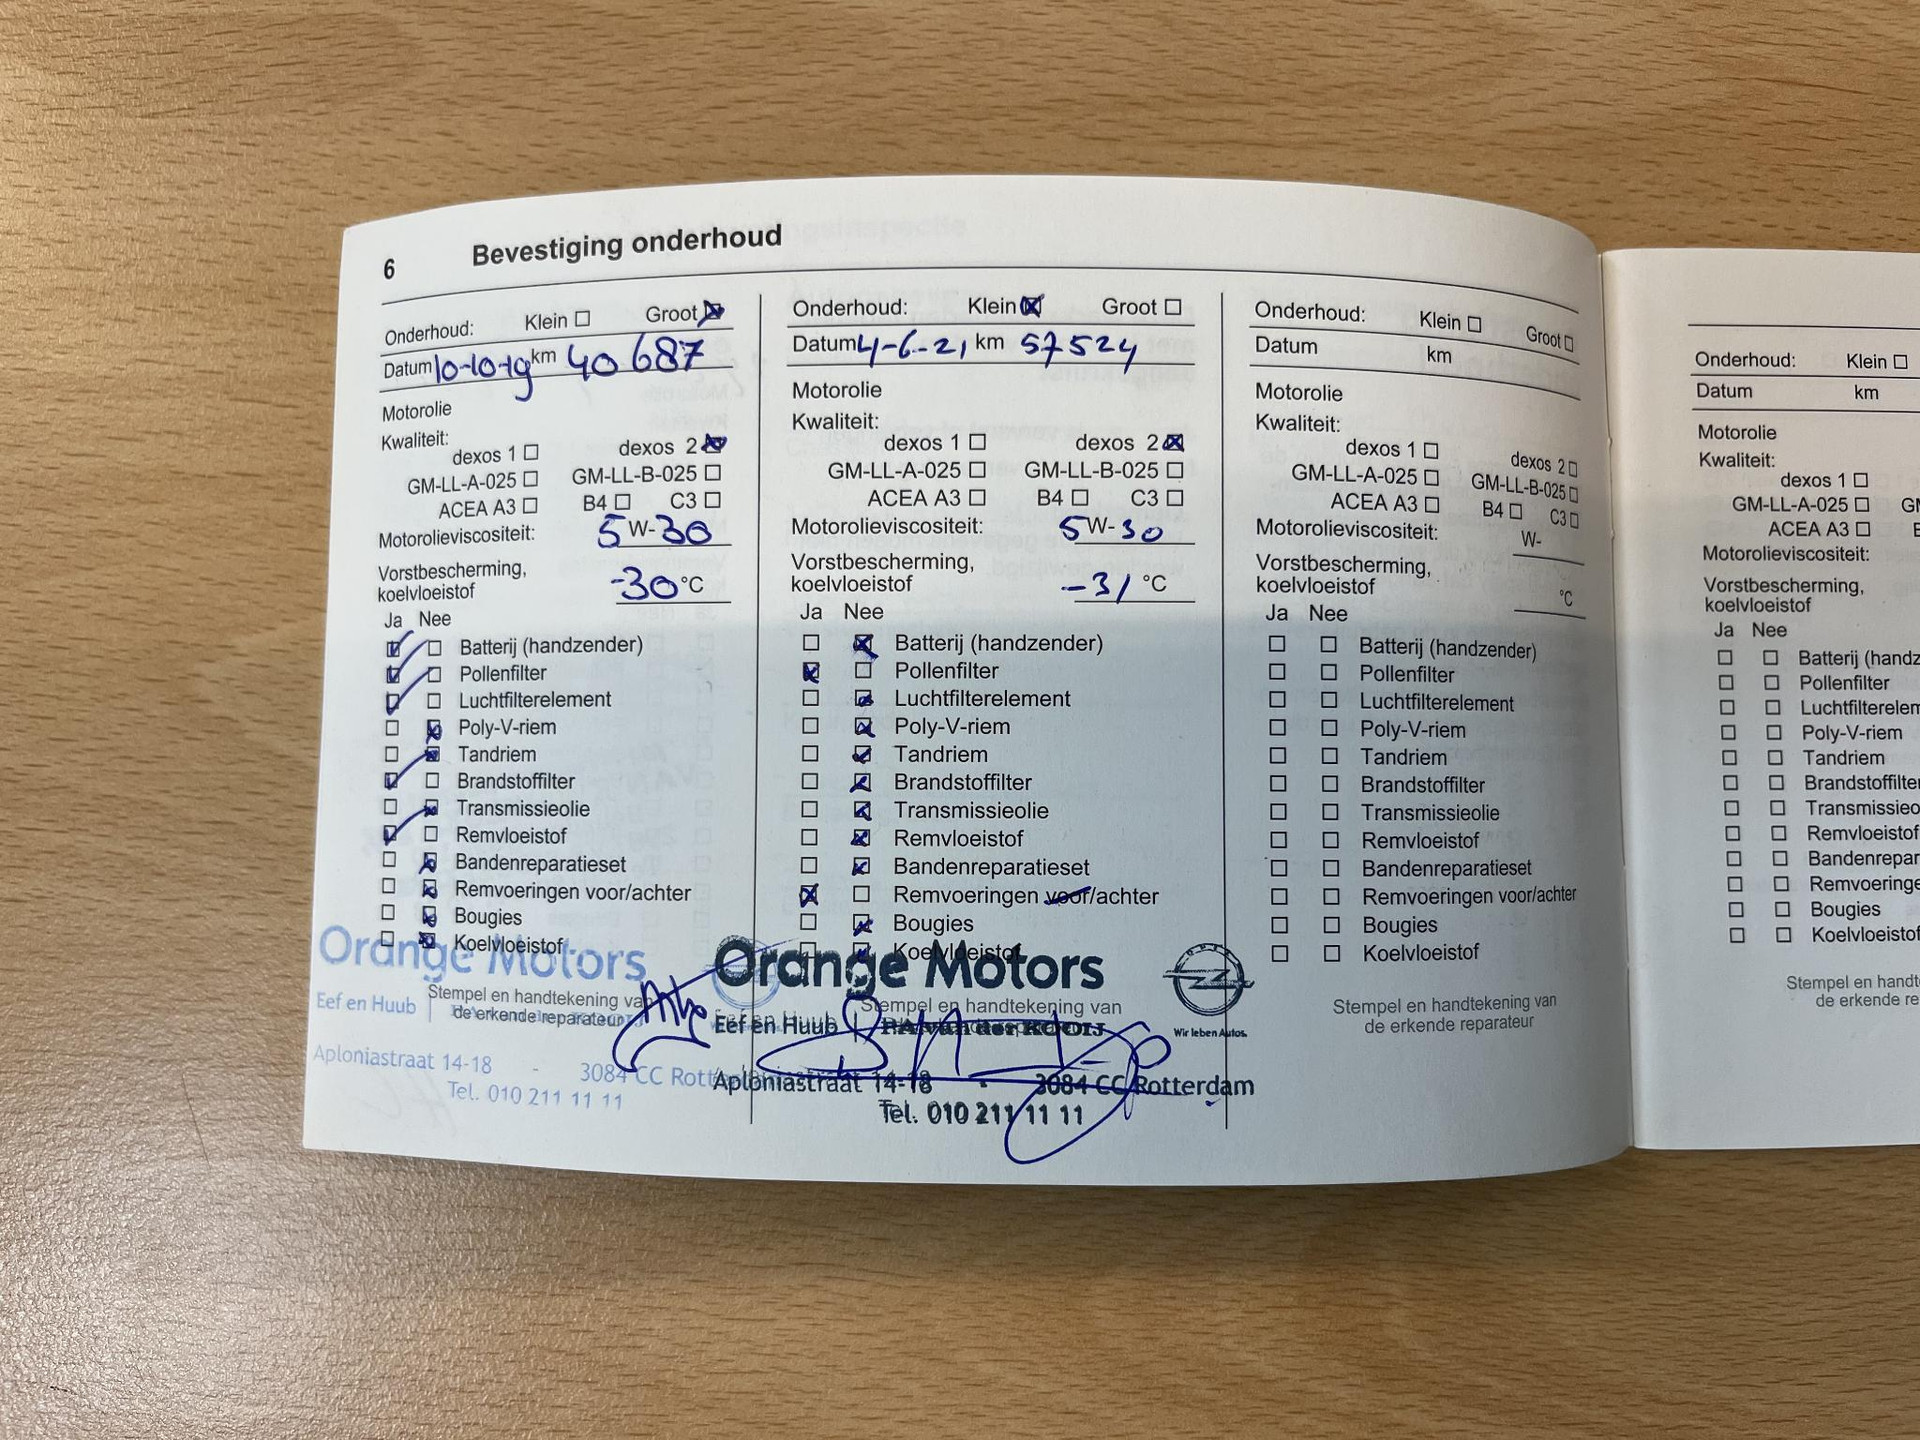 6 Bevestiging onderhoud
Onderhoud: Klein Groot
Datum 10-10-19 km 40 687
Motorolie
Kwaliteit:
dexos 1 dexos 2
GM-LL-A-025 GM-LL-B-025
ACEA A3 B4 C3
Motorolieviscositeit: 5 W-30
Vorstbescherming,
koelvloeistof -30 °C
Ja Nee
Batterij (handzender)
Pollenfilter
Luchtfilterelement
Poly-V-riem
Tandriem
Brandstoffilter
Transmissieolie
Remvloeistof
Bandenreparatieset
Remvoeringen voor/achter
Bougies
Koelvloeistof
Orange Motors
Stempel en handtekening van
de erkende reparateur
Eef en Huub
Aploniastraat 14-18 - 3084 CC Rott
Tel. 010 211 11 11
Onderhoud: Klein Groot
Datum 4-6-21 km 57524
Motorolie
Kwaliteit:
dexos 1 dexos 2
GM-LL-A-025 GM-LL-B-025
ACEA A3 B4 C3
Motorolieviscositeit: 5 W-30
Vorstbescherming,
koelvloeistof -31 °C
Ja Nee
Batterij (handzender)
Pollenfilter
Luchtfilterelement
Poly-V-riem
Tandriem
Brandstoffilter
Transmissieolie
Remvloeistof
Bandenreparatieset
Remvoeringen voor/achter
Bougies
Koelvloeistof
Orange Motors
Stempel en handtekening van
Eef en Huub
Wir leben Autos.
Aploniastraat 14-18 - 3084 CC Rotterdam
Tel. 010 211 11 11
Onderhoud: Klein Groot
Datum km
Motorolie
Kwaliteit:
dexos 1 dexos 2
GM-LL-A-025 GM-LL-B-025
ACEA A3 B4 C3
Motorolieviscositeit: W-
Vorstbescherming,
koelvloeistof °C
Ja Nee
Batterij (handzender)
Pollenfilter
Luchtfilterelement
Poly-V-riem
Tandriem
Brandstoffilter
Transmissieolie
Remvloeistof
Bandenreparatieset
Remvoeringen voor/achter
Bougies
Koelvloeistof
Stempel en handtekening van
de erkende reparateur
Onderhoud: Klein
Datum km
Motorolie
Kwaliteit:
dexos 1
GM-LL-A-025 GM
ACEA A3
Motorolieviscositeit:
Vorstbescherming,
koelvloeistof
Ja Nee
Batterij (handz
Pollenfilter
Luchtfilterelem
Poly-V-riem
Tandriem
Brandstoffilte
Transmissieo
Remvloeistof
Bandenrepar
Remvoeringe
Bougies
Koelvloeistof
Stempel en handt
de erkende re